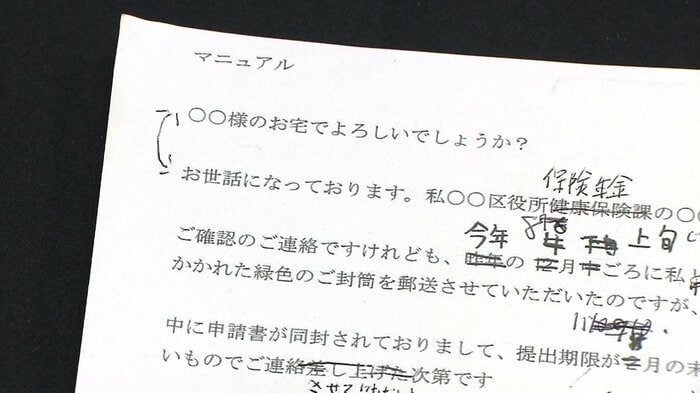 マニュアル
〇〇様のお宅でよろしいでしょうか？
保険年金
お世話になっております。私〇〇区役所健康保険課の〇
今年 8月 上旬
ご確認のご連絡ですけれども、昨年の12月中ごろに私
かかれた緑色のご封筒を郵送させていただいたのですが、
中に申請書が同封されておりまして、提出期限が2月の末
いものでご連絡差し上げた次第です
させていただいた